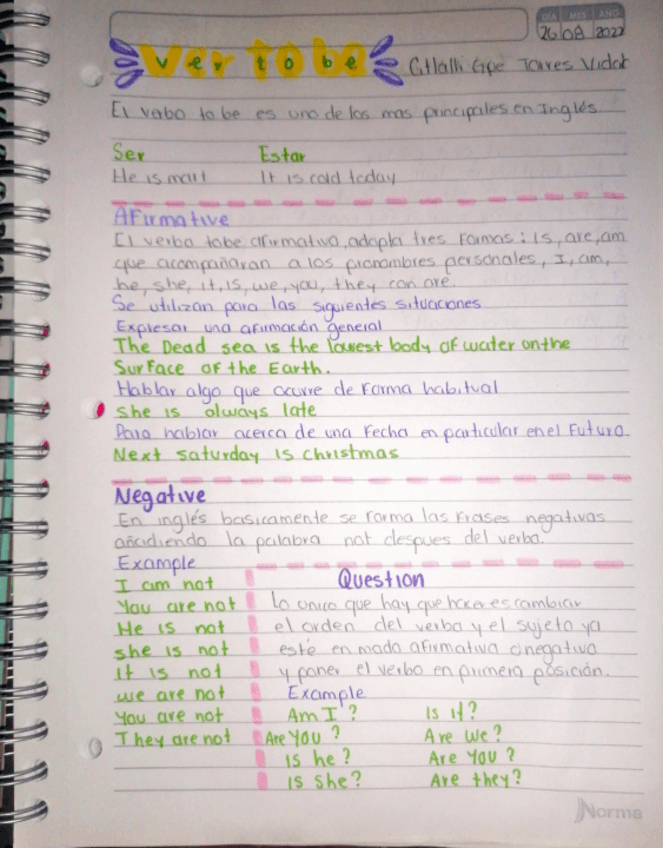 DIA MES AÑO
26 08 2022
ver to be
Citlalli Gpe Torres Vidal
El verbo to be es uno de los mas principales en Inglés
Ser Estar
He is It is cold today
AFirmative
El verbo tobe afirmativo, adopta tres Formas: is, are, am
que acompañaran a los pronombres personales, I, am,
he, she, it, is, we, you, they con are.
Se utilizan para las siguientes situaciones
Expresar una afirmación general
The Dead sea is the lowest body of water on the
SurFace of the Earth.
Hablar algo que ocurre de Forma habitual
She is always late
Para hablar acerca de una Fecha en particular en el Futuro
Next saturday is christmas
Negative
En inglés basicamente se Forma las Frases negativas
añidiendo la palabra not despues del verbo.
Example
I am not
You are not
He is not
she is not
It is not
we are not
You are not
They are not
Question
Lo unico que hay que hacer es cambiar
el orden del verbo y el sujeto ya
esté en modo afirmativa o negativa
y poner el verbo en primera posición.
Example
Am I? Is it?
Are you? Are we?
Is he? Are you?
Is she? Are they?
Norma